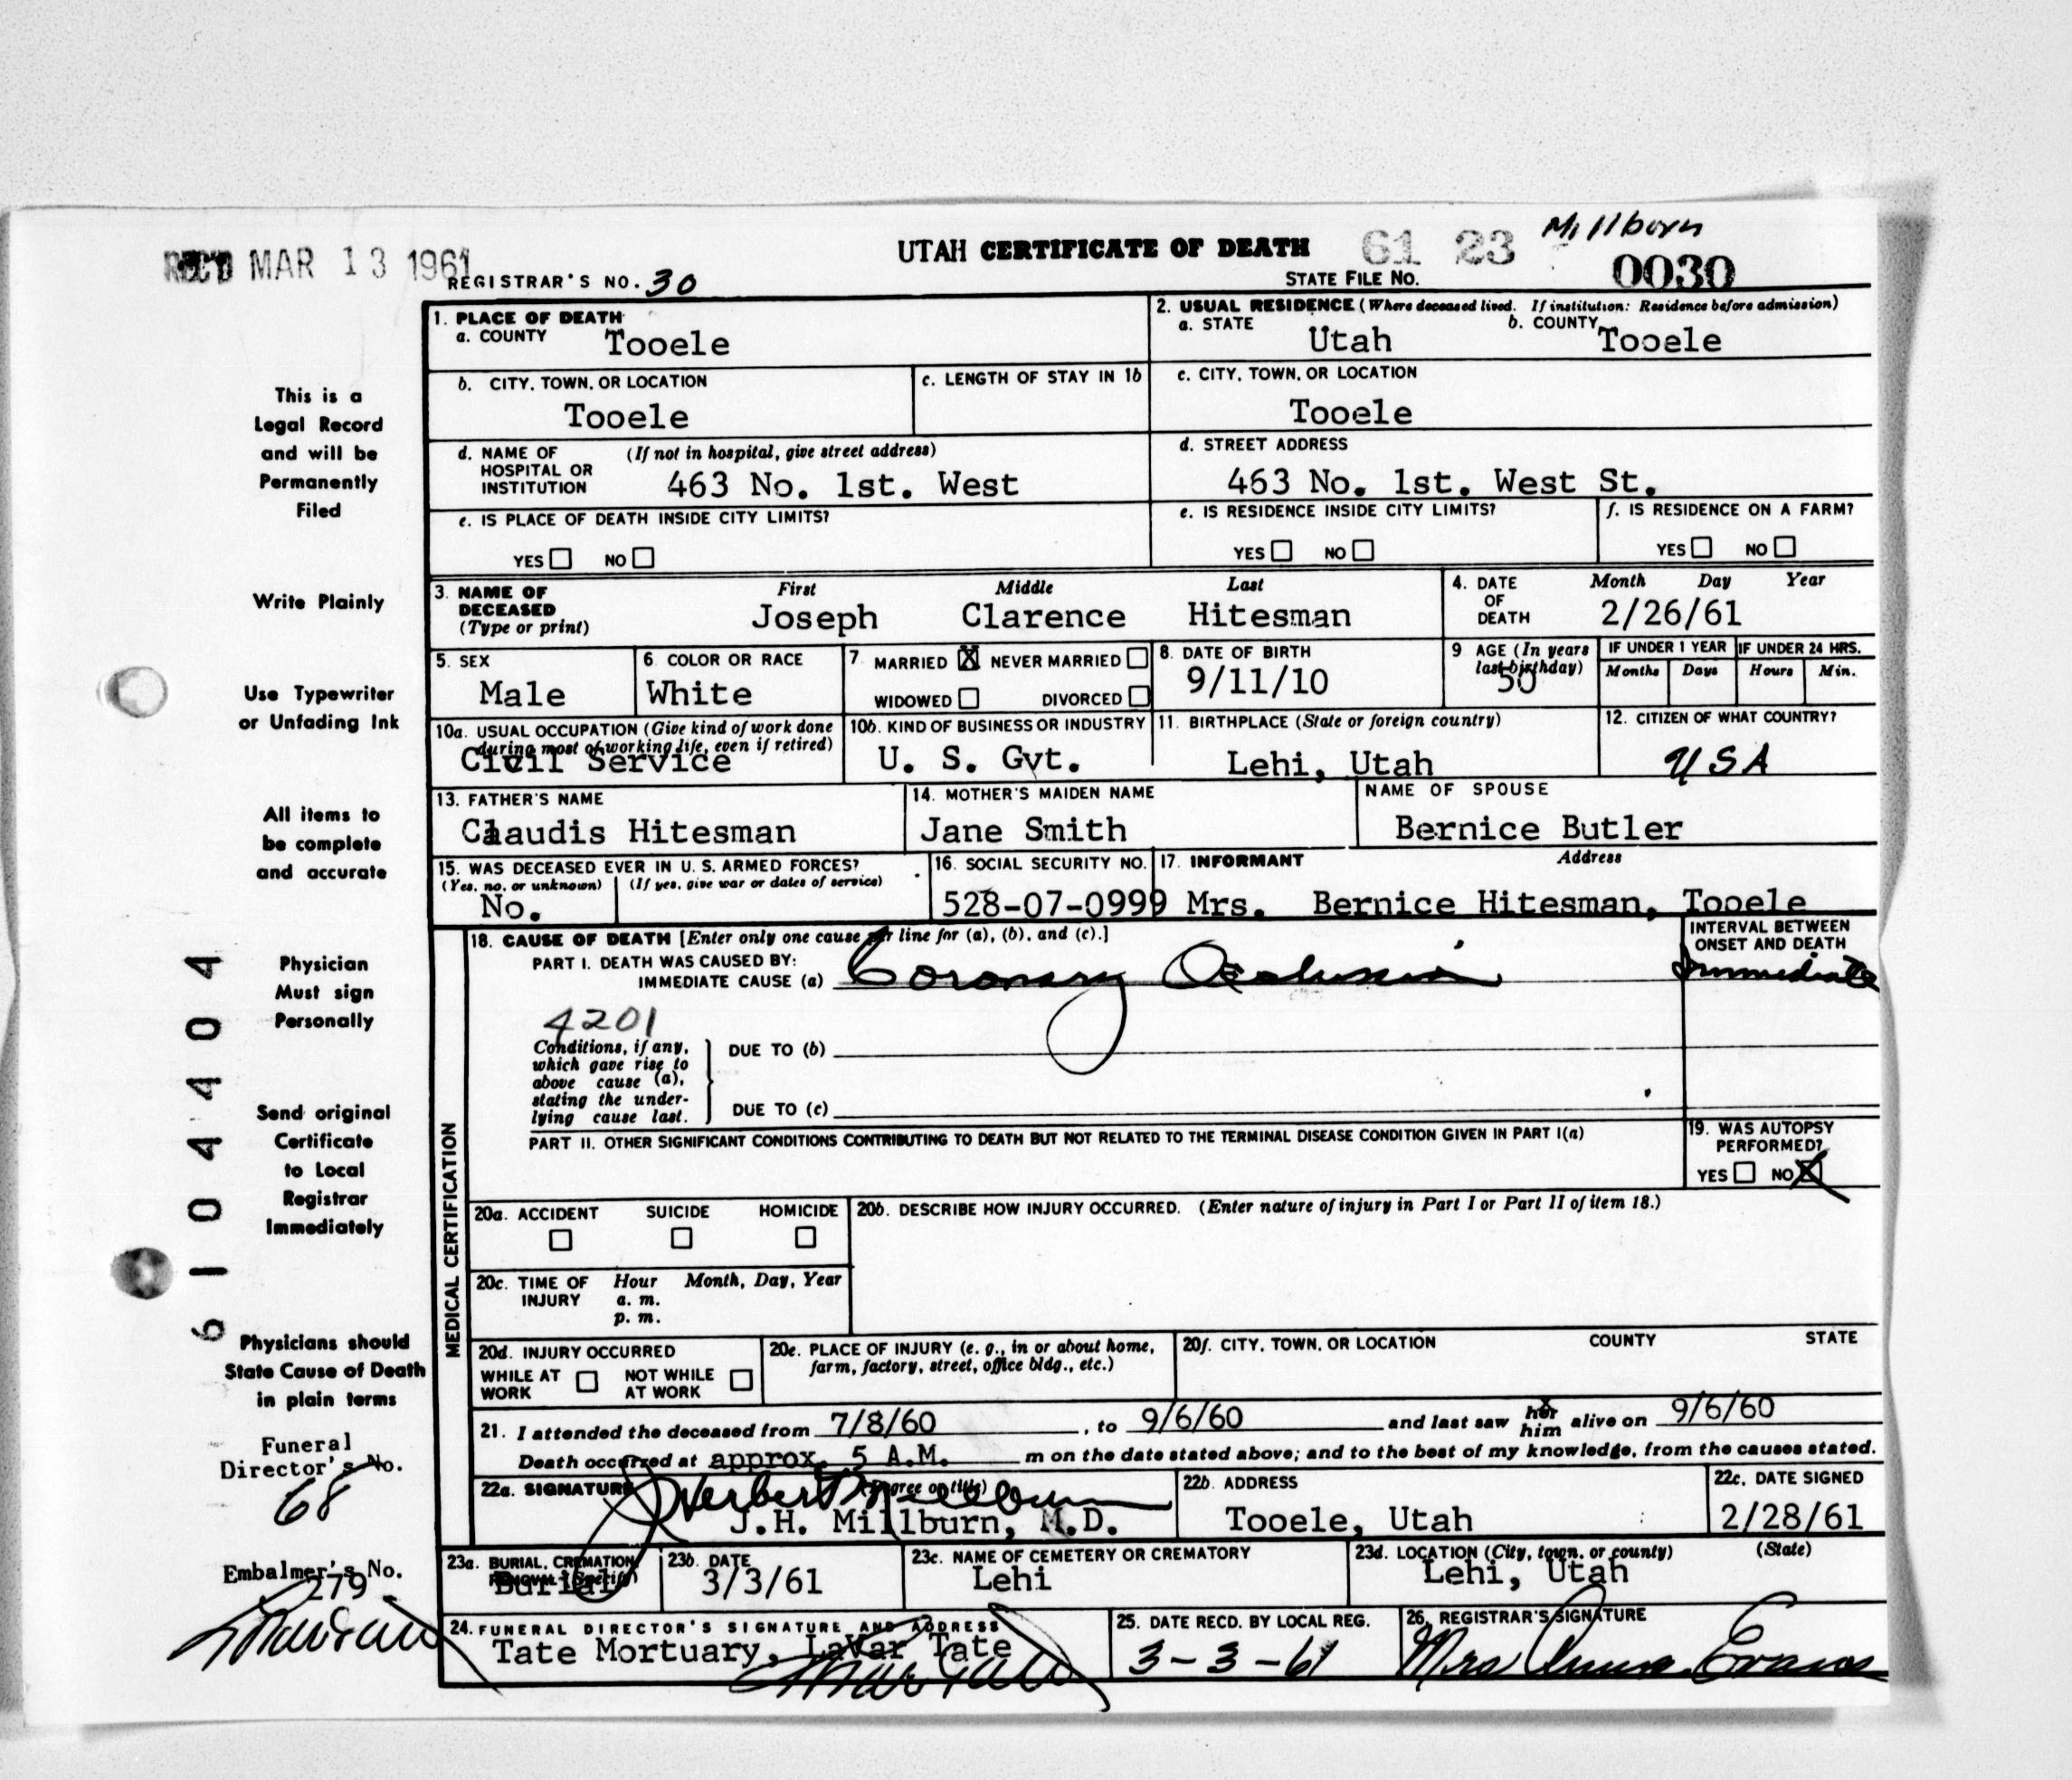 REC'D MAR 13 1961
UTAH CERTIFICATE OF DEATH
61 23
Millborn
REGISTRAR'S NO. 30
STATE FILE NO.
0030
1. PLACE OF DEATH
a. COUNTY Tooele
2. USUAL RESIDENCE (Where deceased lived. If institution: Residence before admission)
a. STATE Utah b. COUNTY Tooele
b. CITY, TOWN, OR LOCATION
Tooele
c. LENGTH OF STAY IN 1b
c. CITY, TOWN, OR LOCATION
Tooele
d. NAME OF HOSPITAL OR INSTITUTION (If not in hospital, give street address)
463 No. 1st. West
d. STREET ADDRESS
463 No. 1st. West St.
e. IS PLACE OF DEATH INSIDE CITY LIMITS?
YES NO
e. IS RESIDENCE INSIDE CITY LIMITS?
YES NO
f. IS RESIDENCE ON A FARM?
YES NO
3. NAME OF DECEASED (Type or print)
First Middle Last
Joseph Clarence Hitesman
4. DATE OF DEATH
Month Day Year
2/26/61
5. SEX
Male
6. COLOR OR RACE
White
7. MARRIED X NEVER MARRIED
WIDOWED DIVORCED
8. DATE OF BIRTH
9/11/10
9 AGE (In years last birthday)
50
IF UNDER 1 YEAR
Months Days
IF UNDER 24 HRS.
Hours Min.
10a. USUAL OCCUPATION (Give kind of work done
during most of working life, even if retired)
Civil Service
10b. KIND OF BUSINESS OR INDUSTRY
U. S. Gvt.
11. BIRTHPLACE (State or foreign country)
Lehi, Utah
12. CITIZEN OF WHAT COUNTRY?
USA
13. FATHER'S NAME
Claudis Hitesman
14. MOTHER'S MAIDEN NAME
Jane Smith
NAME OF SPOUSE
Bernice Butler
15. WAS DECEASED EVER IN U. S. ARMED FORCES?
(Yes, no, or unknown) (If yes, give war or dates of service)
No.
16. SOCIAL SECURITY NO.
528-07-0999
17. INFORMANT Address
Mrs. Bernice Hitesman, Tooele
MEDICAL CERTIFICATION
18. CAUSE OF DEATH [Enter only one cause per line for (a), (b), and (c).]
PART I. DEATH WAS CAUSED BY:
IMMEDIATE CAUSE (a) Coronary Occlusion
INTERVAL BETWEEN
ONSET AND DEATH
Immediate
4201
Conditions, if any,
which gave rise to
above cause (a),
stating the under-
lying cause last.
DUE TO (b)
DUE TO (c)
PART II. OTHER SIGNIFICANT CONDITIONS CONTRIBUTING TO DEATH BUT NOT RELATED TO THE TERMINAL DISEASE CONDITION GIVEN IN PART I(a)
19. WAS AUTOPSY
PERFORMED?
YES NO X
20a. ACCIDENT SUICIDE HOMICIDE
20b. DESCRIBE HOW INJURY OCCURRED. (Enter nature of injury in Part I or Part II of item 18.)
20c. TIME OF INJURY
Hour Month, Day, Year
a. m.
p. m.
20d. INJURY OCCURRED
WHILE AT WORK NOT WHILE AT WORK
20e. PLACE OF INJURY (e. g., in or about home,
farm, factory, street, office bldg., etc.)
20f. CITY, TOWN, OR LOCATION COUNTY STATE
21. I attended the deceased from 7/8/60, to 9/6/60 and last saw her him alive on 9/6/60
Death occurred at approx. 5 A.M. m on the date stated above; and to the best of my knowledge, from the causes stated.
22a. SIGNATURE (Degree or title)
J Herbert Millburn
J.H. Millburn, M.D.
22b. ADDRESS
Tooele, Utah
22c. DATE SIGNED
2/28/61
23a. BURIAL, CREMATION, REMOVAL (Specify)
Burial
23b. DATE
3/3/61
23c. NAME OF CEMETERY OR CREMATORY
Lehi
23d. LOCATION (City, town, or county) (State)
Lehi, Utah
24. FUNERAL DIRECTOR'S SIGNATURE AND ADDRESS
Tate Mortuary, LaVar Tate
25. DATE RECD. BY LOCAL REG.
3-3-61
26. REGISTRAR'S SIGNATURE
Mrs Anna Evans
This is a
Legal Record
and will be
Permanently
Filed
Write Plainly
Use Typewriter
or Unfading Ink
All items to
be complete
and accurate
Physician
Must sign
Personally
Send original
Certificate
to Local
Registrar
Immediately
Physicians should
State Cause of Death
in plain terms
Funeral
Director's No.
68
Embalmer's No.
279
6104404